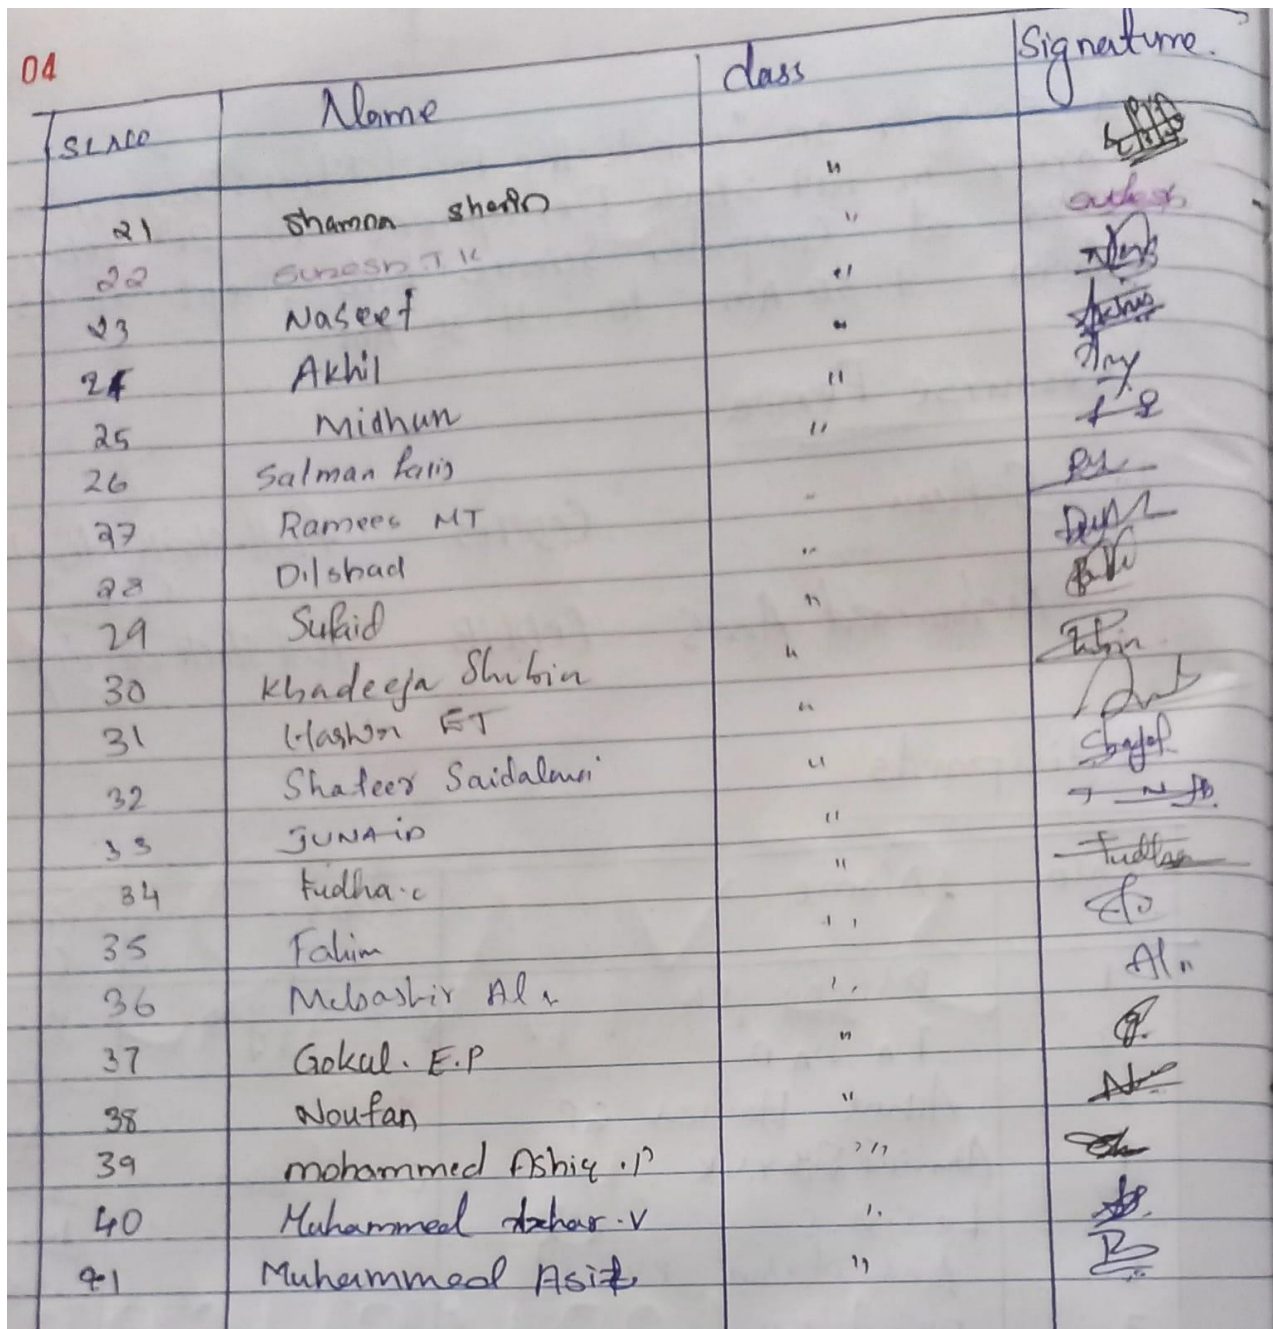 04
SL NO Name Class Signature.
21 Shamna Sherin "
22 Suhesh T K "
23 Naseef "
24 Akhil "
25 Midhun "
26 Salman Faris "
27 Ramees MT "
28 Dilshad "
29 Sufaid "
30 Khadeeja Shibin "
31 Hashim ET "
32 Shafeer Saidalavi "
33 JUNAID "
34 Fudha.c " Fudha
35 Fahim "
36 Mubashir Al "
37 Gokul. E.P "
38 Noufan "
39 mohammed Ashiq .P "
40 Muhammed Azhar.V "
41 Muhammed Asif "